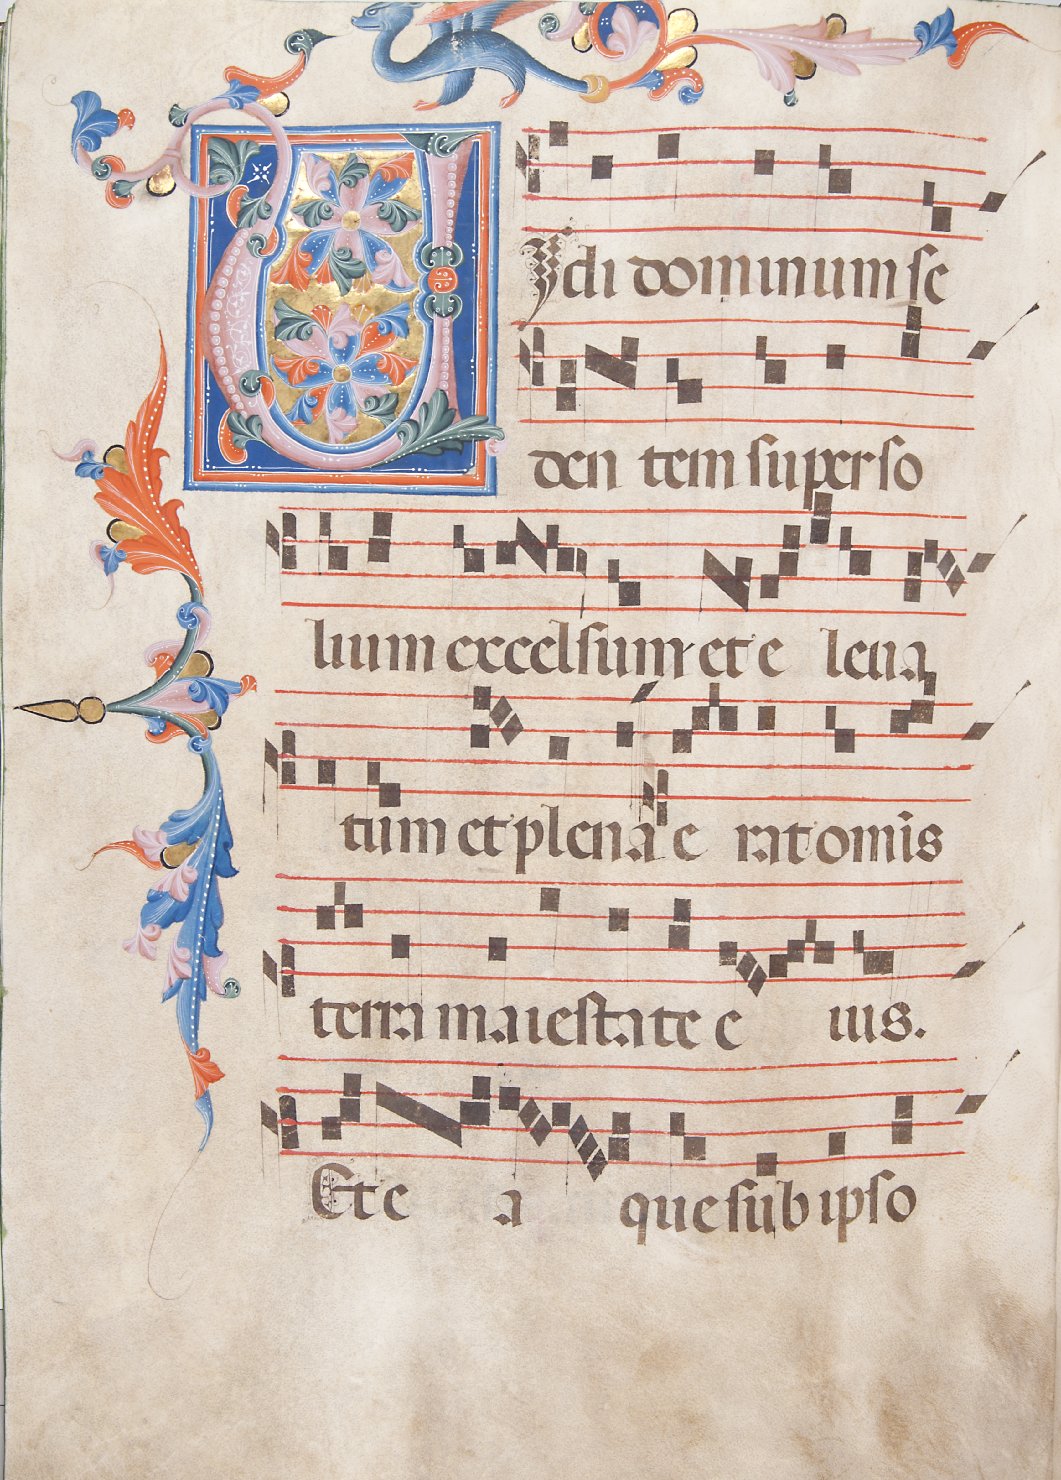 Vydi dominum se
den tem super so
lium excelsum et e leua
tum et plena e rat omnis
terra maiestate e ius.
Et e a que sub ipso